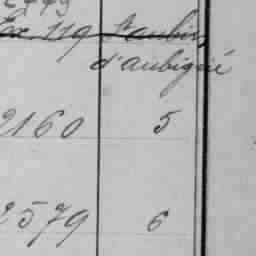 Ex 119 St aubin
d'aubigné
2160 5
2579 6